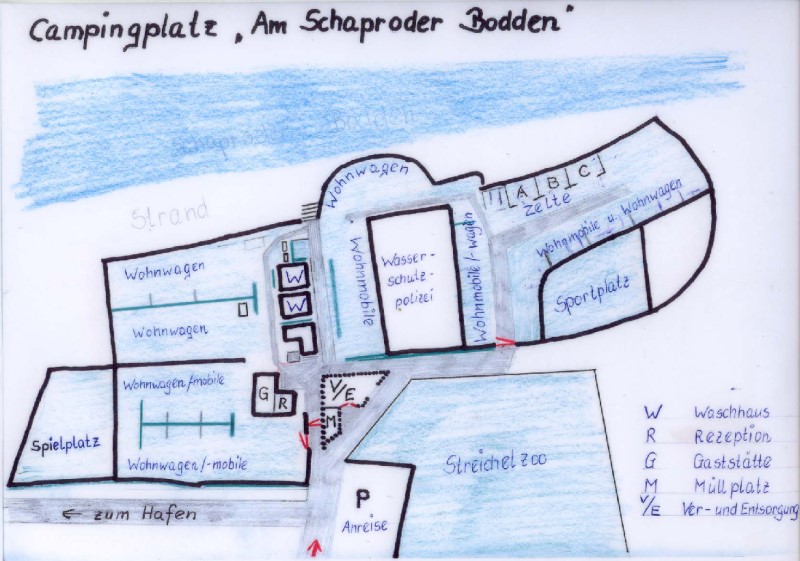 Campingplatz „Am Schaproder Bodden"
Schaproder Bodden
Strand
Wohnwagen
A B C
Zelte
Wohnmobile u. Wohnwagen
Wohnwagen
Wohnwagen
W
W
Wohnmobile
Wasser-
schutz-
polizei
Wohnmobile/-wagen
Sportplatz
Wohnwagen/mobile
Wohnwagen/-mobile
Spielplatz
G
R
V/E
M
Streichelzoo
P
Anreise
← zum Hafen
W Waschhaus
R Rezeption
G Gaststätte
M Müllplatz
V/E Ver- und Entsorgung